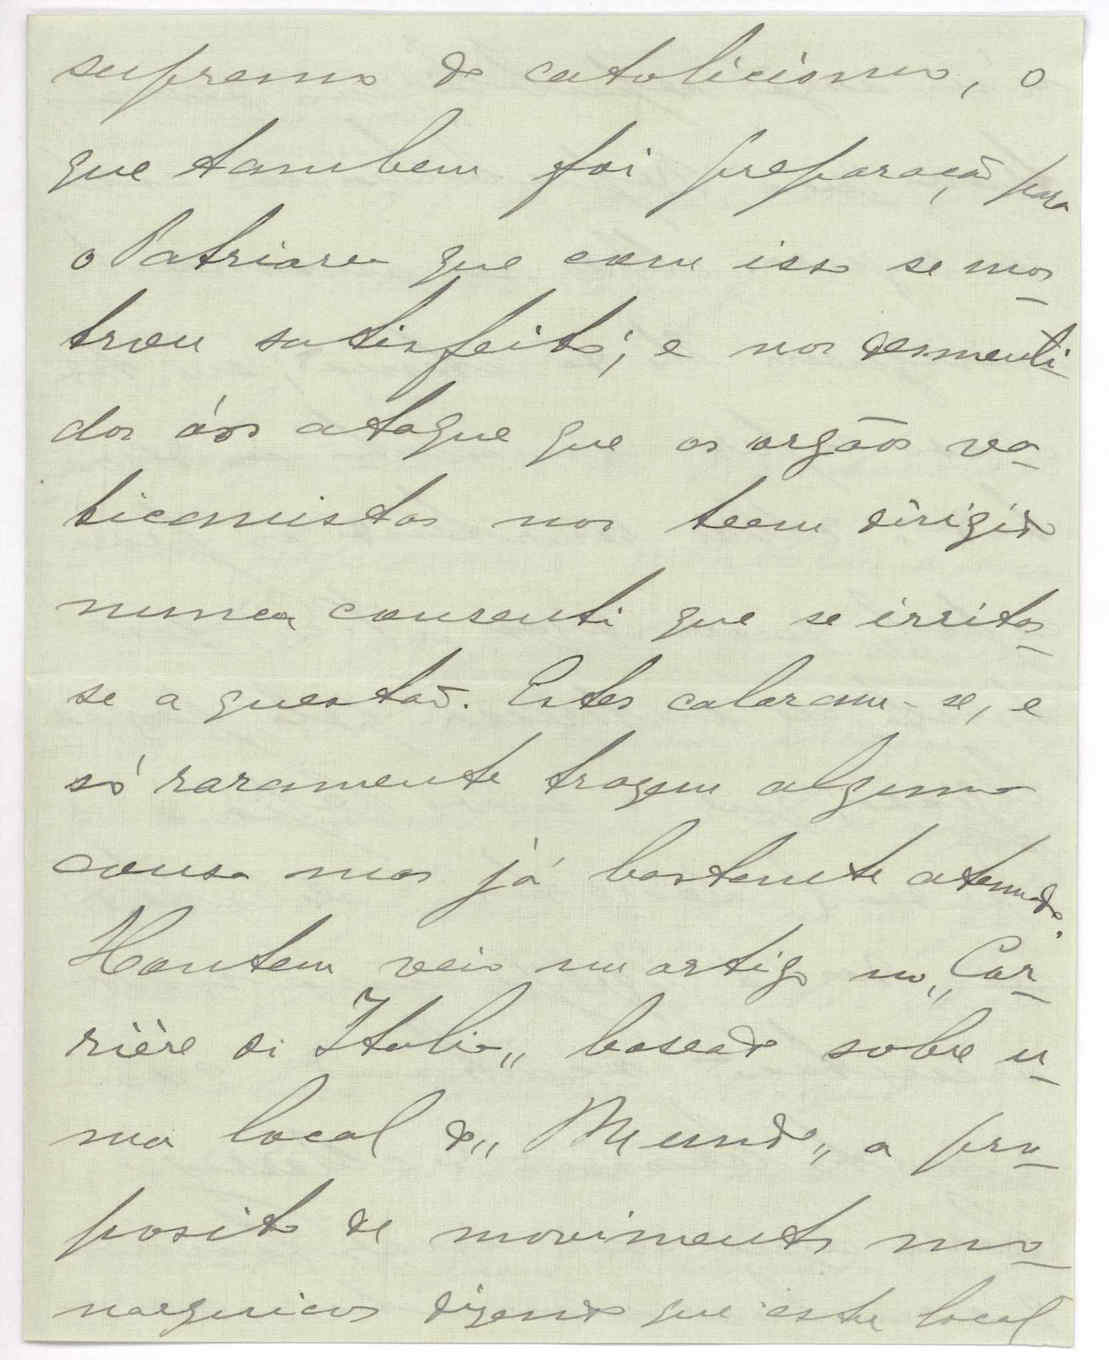 supremo do catolicismo, o
que tambem foi preparação para
o Patriarca que com isso se mos
trou satisfeito; e nos desmenti
dos áos ataque que os orgãos va
ticanistas nos teem dirigido
nunca consenti que se irritas
se a questão. Estes calaram-se, e
só raramente trazem alguma
cousa mas já bastante atenuada.
Hontem veio um artigo no „Cor
rière di Italia„ baseado sobre u
ma local do „Mundo„ a pro
posito de movimentos mo
narquicos dizendo que esta local